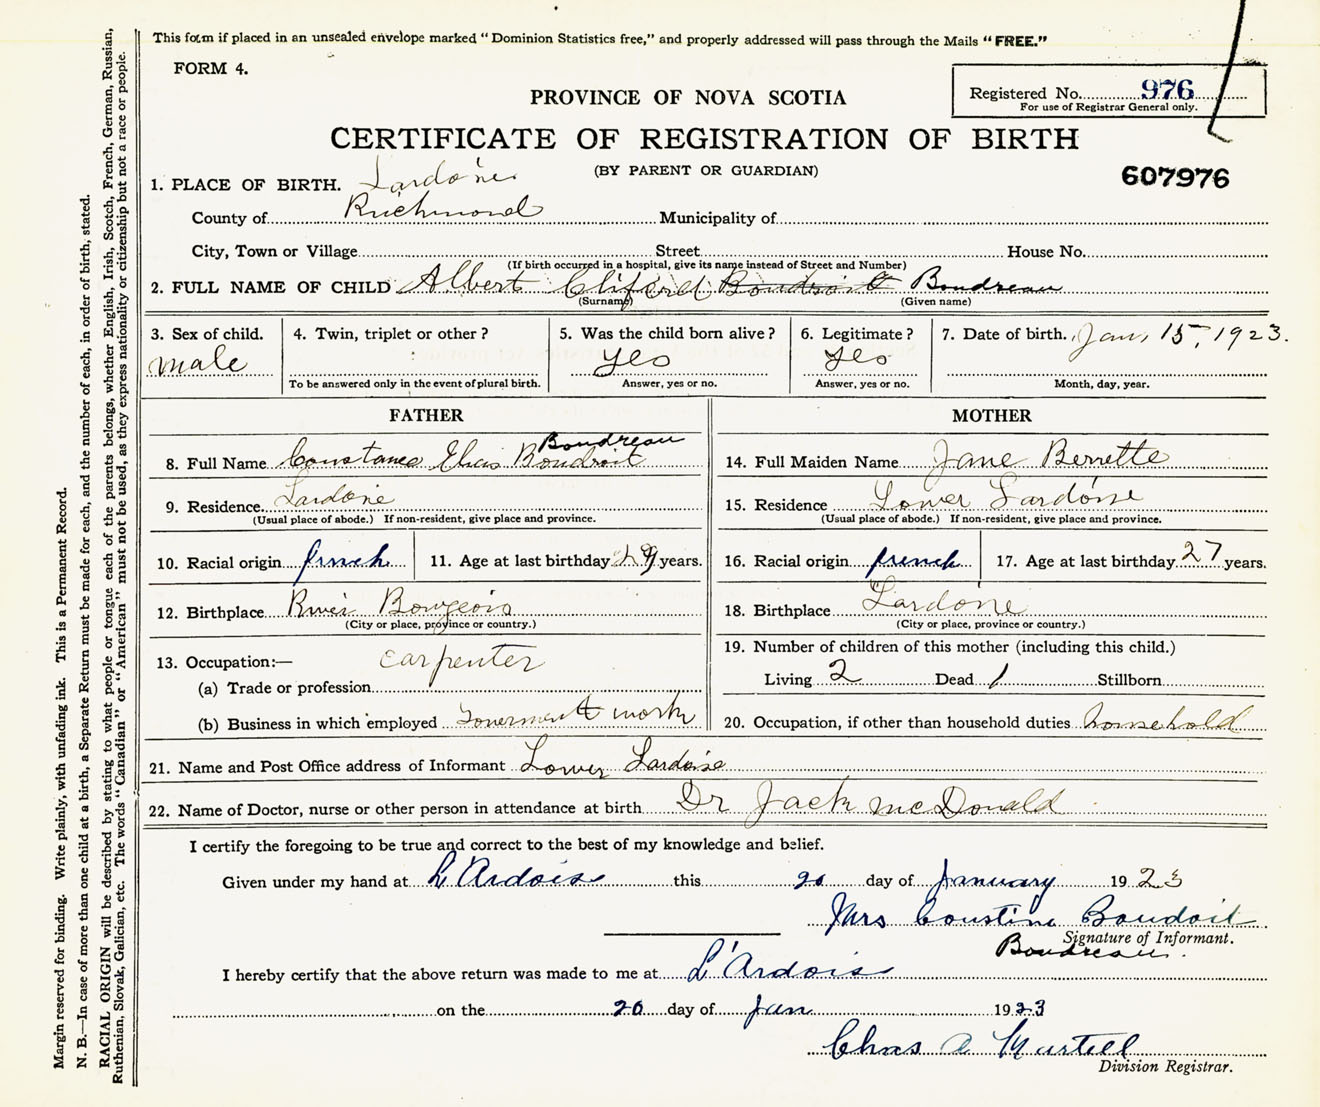 This form if placed in an unsealed envelope marked "Dominion Statistics free," and properly addressed will pass through the Mails "FREE."
FORM 4.
Registered No. 976
For use of Registrar General only.
PROVINCE OF NOVA SCOTIA
CERTIFICATE OF REGISTRATION OF BIRTH
(BY PARENT OR GUARDIAN)
607976
1. PLACE OF BIRTH. Lardoine
County of Richmond Municipality of
City, Town or Village Street House No.
(If birth occurred in a hospital, give its name instead of Street and Number)
2. FULL NAME OF CHILD Albert Clifford Boudroit Boudreau
(Surname) (Given name)
3. Sex of child. male
4. Twin, triplet or other ?
To be answered only in the event of plural birth.
5. Was the child born alive ? yes
Answer, yes or no.
6. Legitimate ? yes
Answer, yes or no.
7. Date of birth. Jan, 15, 1923.
Month, day, year.
FATHER
8. Full Name Constance Elias Boudroit Boudreau
9. Residence. Lardoine
(Usual place of abode.) If non-resident, give place and province.
10. Racial origin french
11. Age at last birthday 29 years.
12. Birthplace River Bourgeois
(City or place, province or country.)
13. Occupation:— carpenter
(a) Trade or profession
(b) Business in which employed Government work
MOTHER
14. Full Maiden Name Jane Berrette
15. Residence Lower Lardoine
(Usual place of abode.) If non-resident, give place and province.
16. Racial origin french
17. Age at last birthday 27 years.
18. Birthplace Lardoine
(City or place, province or country.)
19. Number of children of this mother (including this child.)
Living 2 Dead 1 Stillborn
20. Occupation, if other than household duties household
21. Name and Post Office address of Informant Lower Lardoise
22. Name of Doctor, nurse or other person in attendance at birth Dr Jack McDonald
I certify the foregoing to be true and correct to the best of my knowledge and belief.
Given under my hand at L'Ardoise this 20 day of January 1923
Mrs Constine Boudoit
Signature of Informant.
Boudreau.
I hereby certify that the above return was made to me at L'Ardois
on the 20 day of Jan 1923
Chas A Martell
Division Registrar.
Margin reserved for binding. Write plainly, with unfading ink. This is Permanent Record.
N. B.—In case of more than one child at a birth, a Separate Return must be made for each, and the number of each, in order of birth, stated.
RACIAL ORIGIN will be described by stating to what people or tongue each of the parents belongs, whether English, Irish, Scotch, French, German, Russian,
Ruthenian, Slovak, Galician, etc. The words "Canadian" or "American" must not be used, as they express nationality or citizenship but not a race or people.